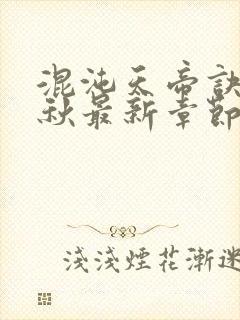 混沌天帝訣
秋最新章節
淺淺煙花漸迷